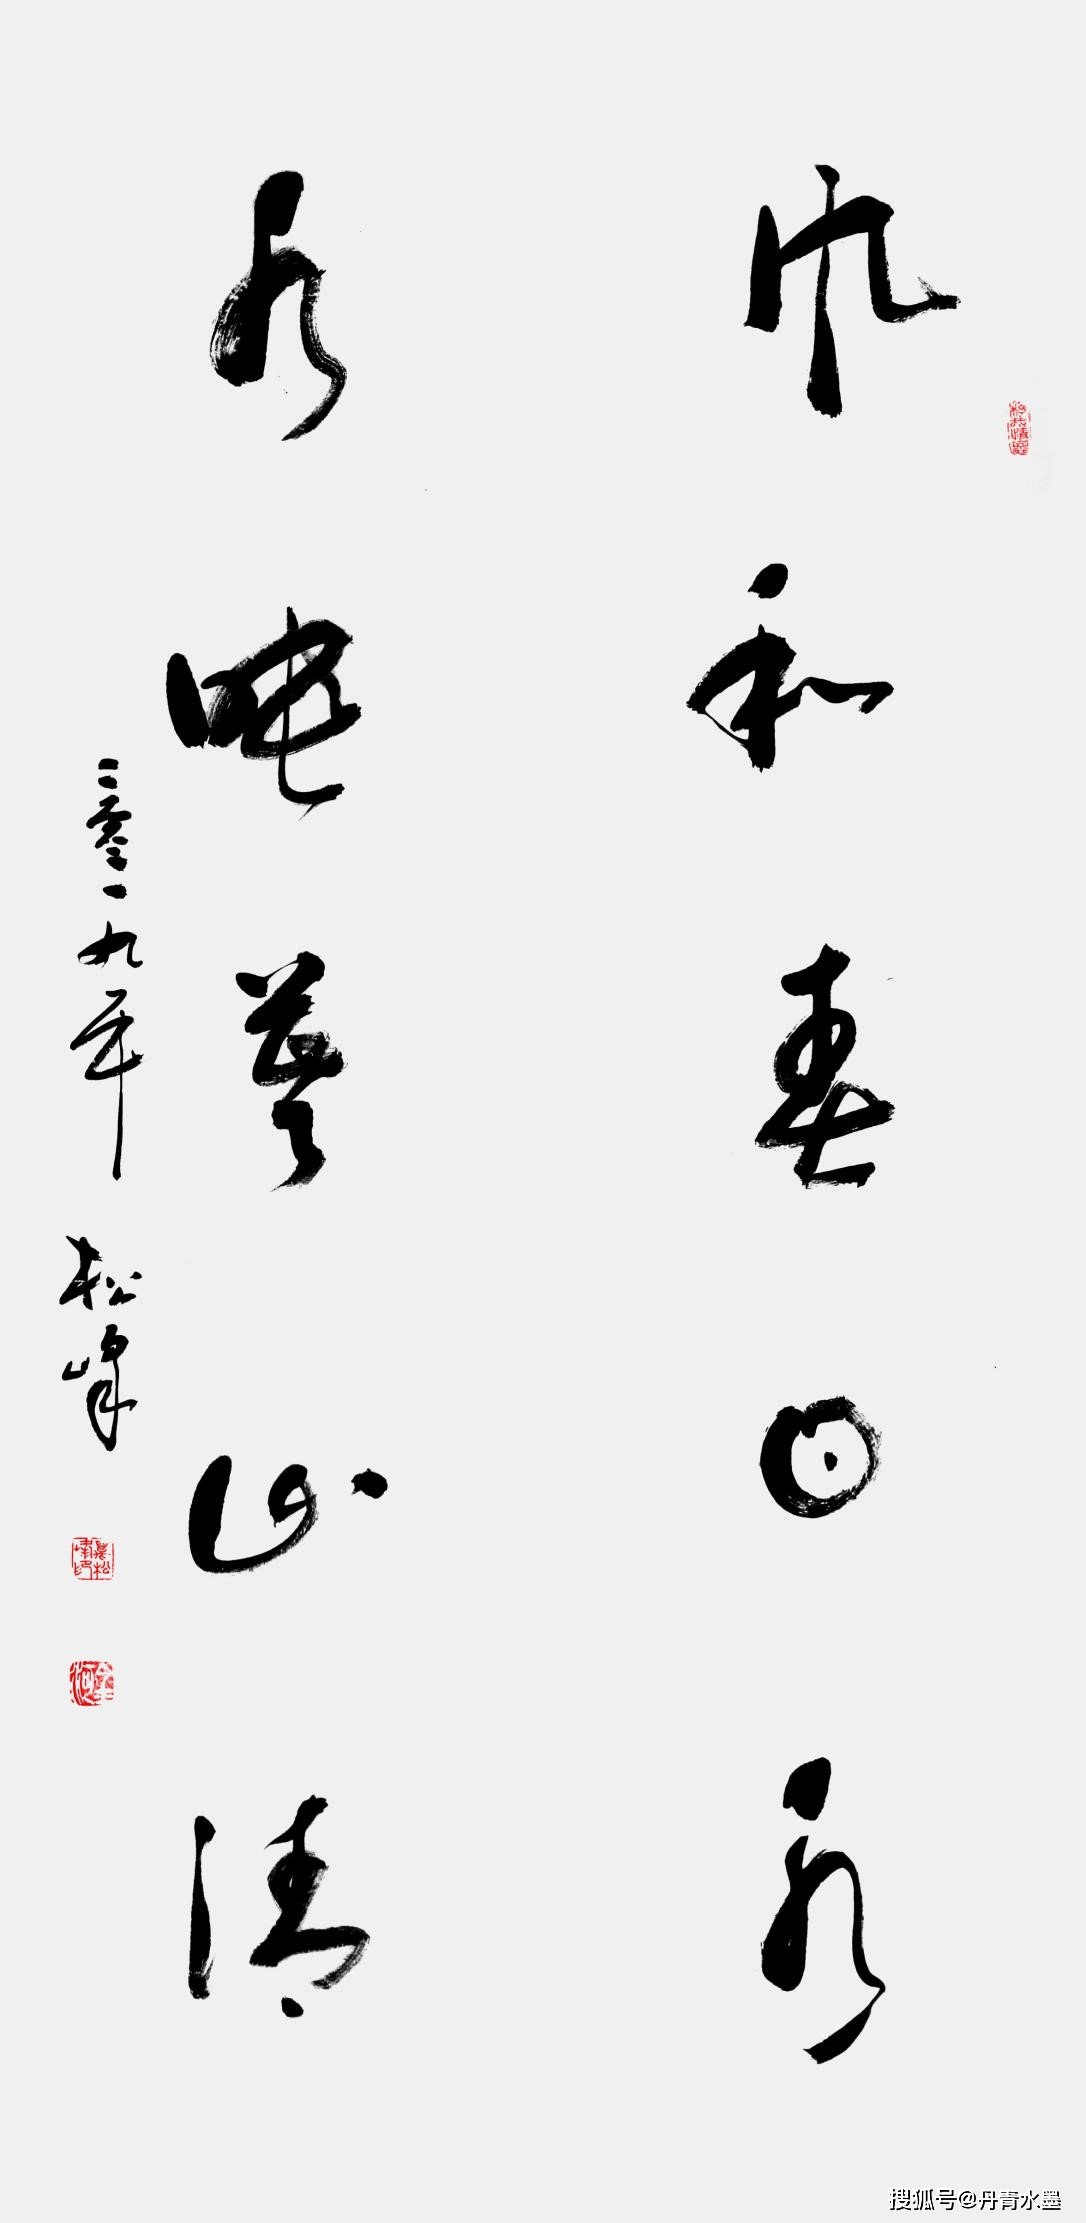 风和春日永
水暮山清
二零一九年 松峰
搜狐号@丹青水墨